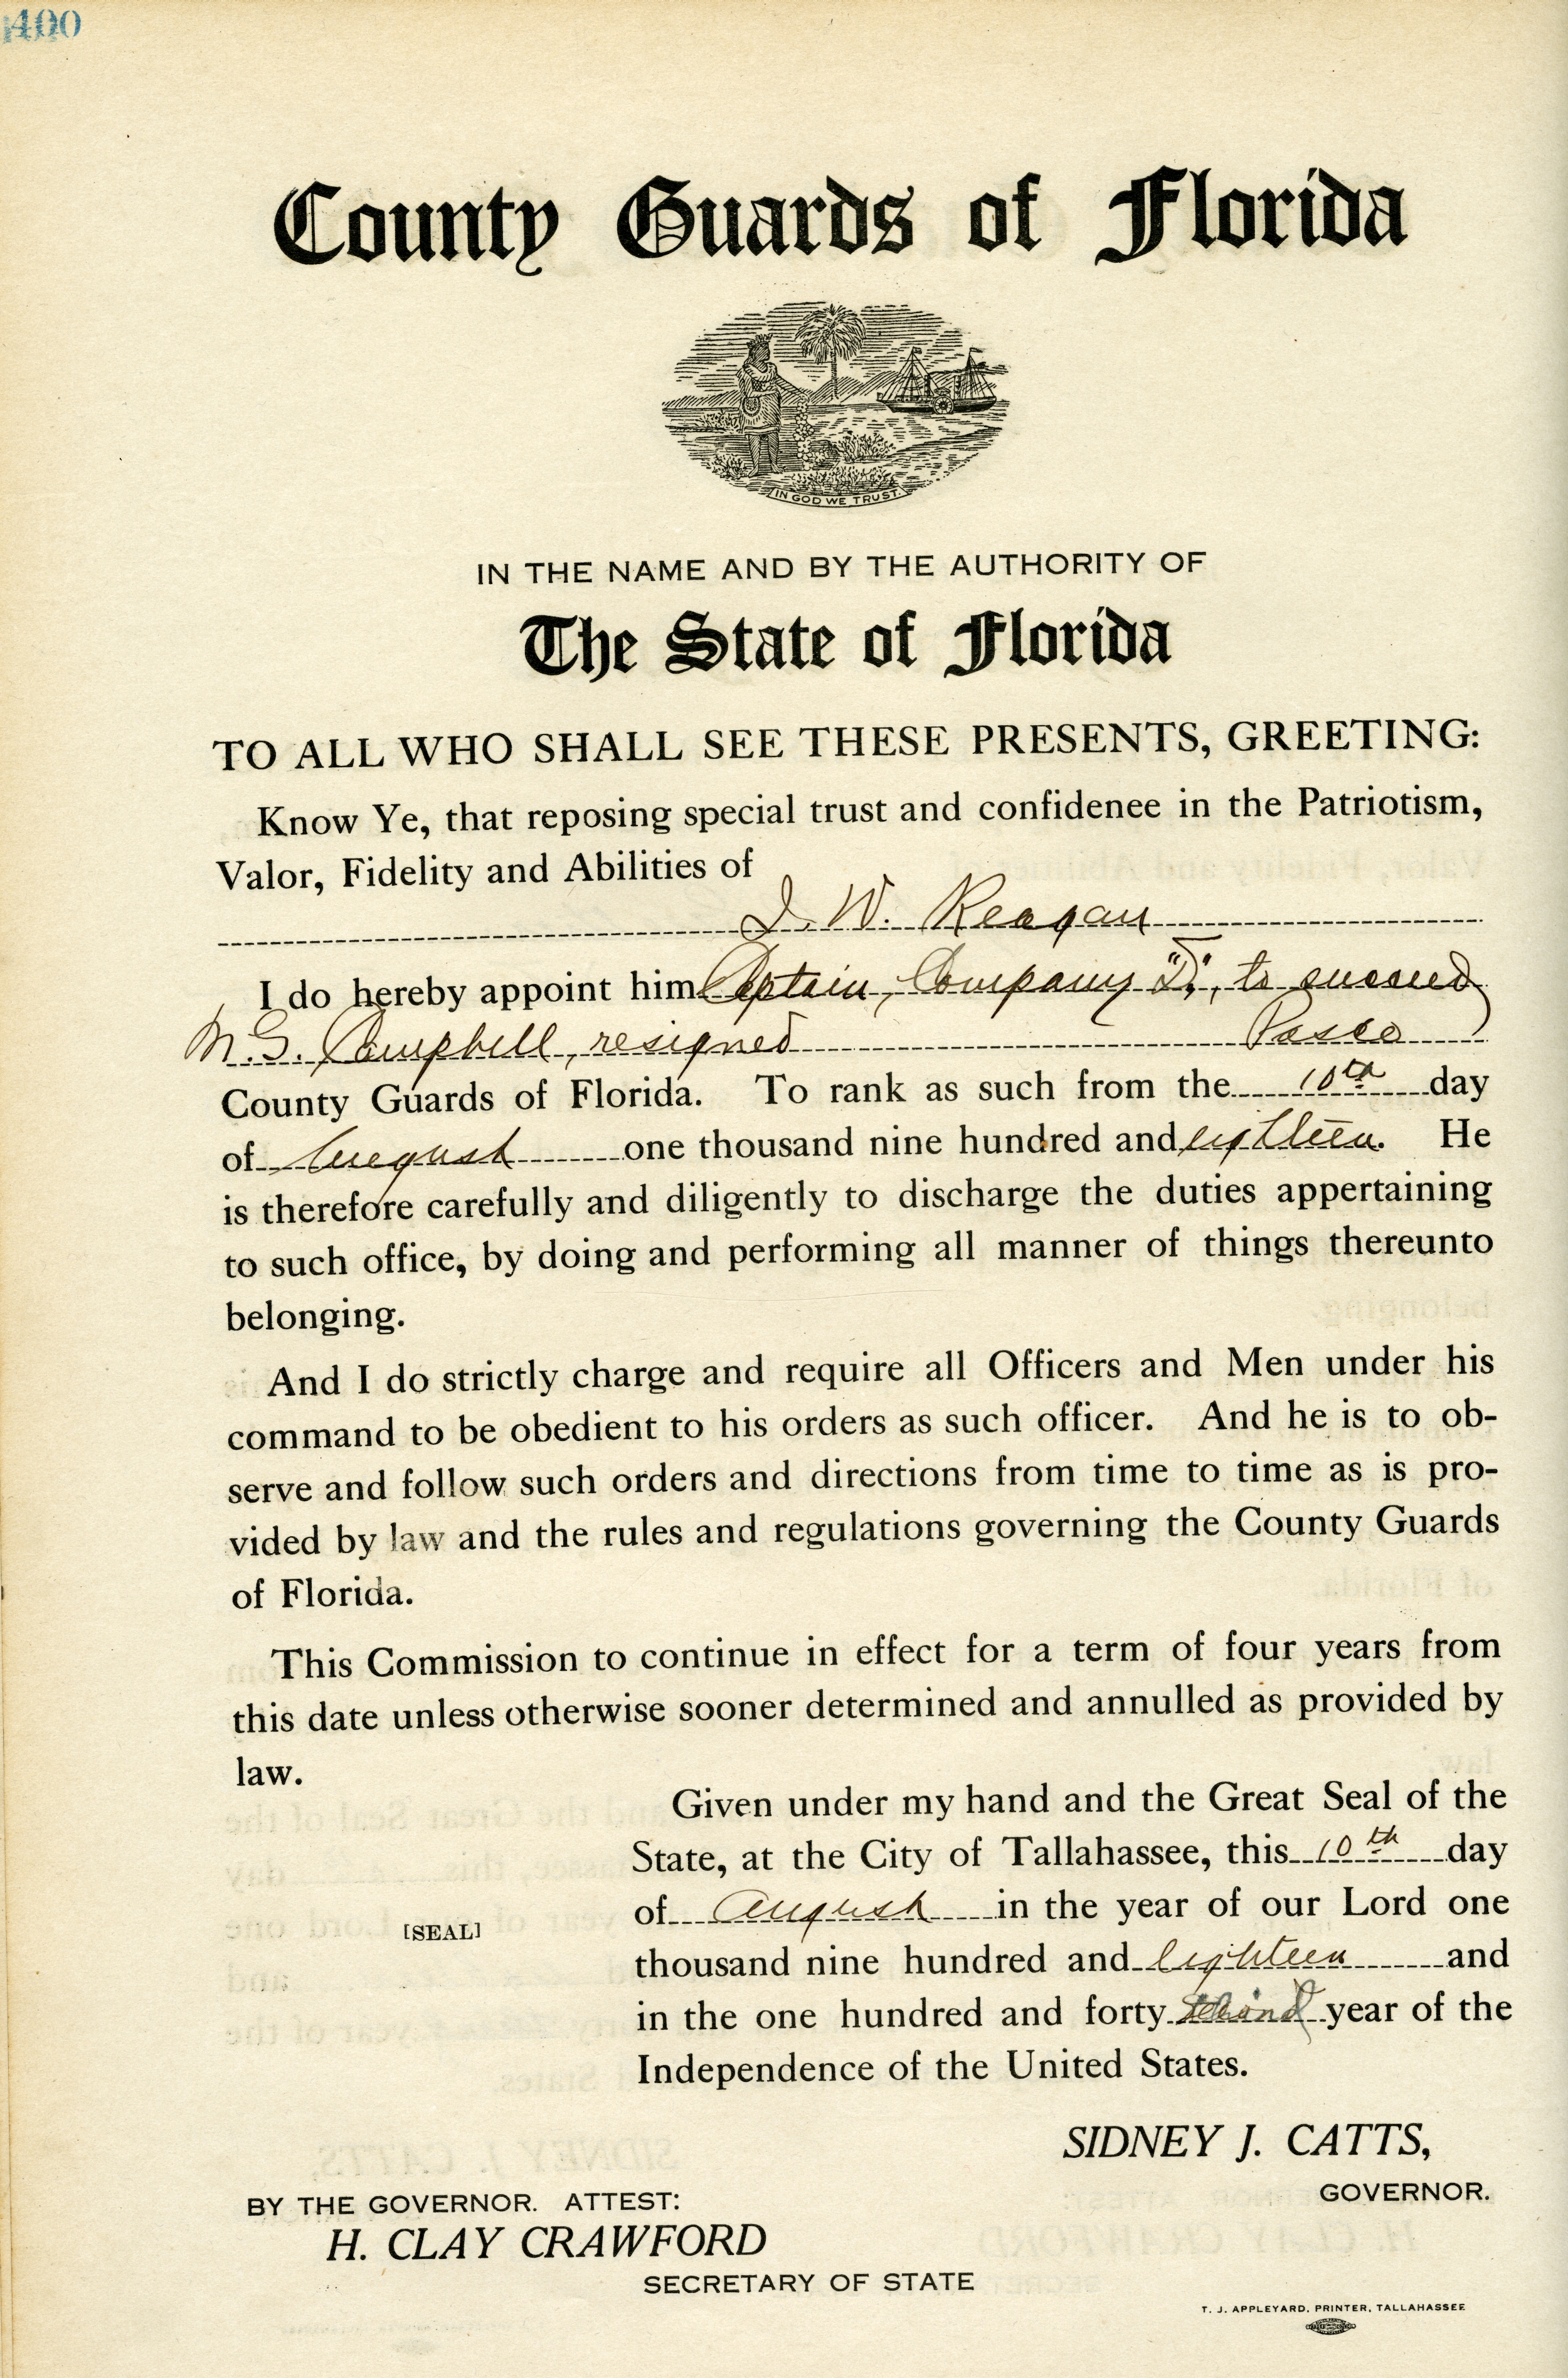 400
County Guards of Florida
IN GOD WE TRUST.
IN THE NAME AND BY THE AUTHORITY OF
The State of Florida
TO ALL WHO SHALL SEE THESE PRESENTS, GREETING:
Know Ye, that reposing special trust and confidenee in the Patriotism,
Valor, Fidelity and Abilities of
J. W. Reagan
I do hereby appoint him Captain, Company "D", to succeed
Campbell, resigned Pasco
County Guards of Florida. To rank as such from the 10th day
of August one thousand nine hundred and eighteen. He
is therefore carefully and diligently to discharge the duties appertaining
to such office, by doing and performing all manner of things thereunto
belonging.
And I do strictly charge and require all Officers and Men under his
command to be obedient to his orders as such officer. And he is to ob-
serve and follow such orders and directions from time to time as is pro-
vided by law and the rules and regulations governing the County Guards
of Florida.
This Commission to continue in effect for a term of four years from
this date unless otherwise sooner determined and annulled as provided by
law.
Given under my hand and the Great Seal of the
State, at the City of Tallahassee, this 10th day
of August in the year of our Lord one
[SEAL]
thousand nine hundred and eighteen and
in the one hundred and forty year of the
Independence of the United States.
SIDNEY J. CATTS,
GOVERNOR.
BY THE GOVERNOR. ATTEST:
H. CLAY CRAWFORD
SECRETARY OF STATE
T. J. APPLEYARD, PRINTER, TALLAHASSEE